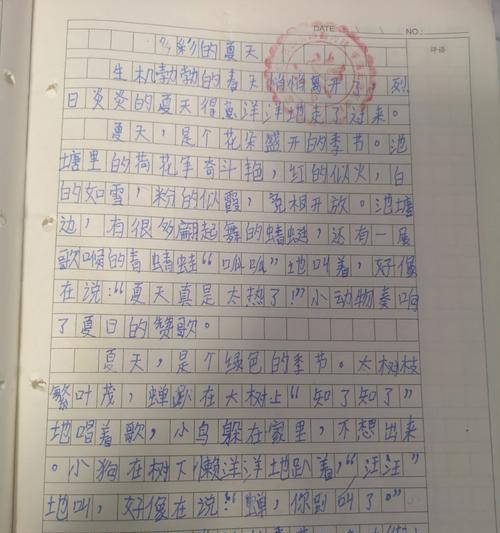 DATE
NO:
评语
多彩的夏天
生机勃勃的春天悄悄离开了,烈
日炎炎的夏天得意洋洋地走了过来。
夏天,是个花朵盛开的季节。池
塘里的荷花争奇斗艳,红的似火,白
的如雪,粉的似霞,竞相开放。池塘
边,有很多翩起舞的蜻蜓,还有一展
歌喉的青蜻蛙“呱呱”地叫着,好像
在说:“夏天真是太热了!”小动物奏响
了夏日的赞歌。
夏天,是个绿色的季节。大树枝
繁叶茂,蝉趴在大树上“知了知了”
地唱着歌,小鸟躲在家里,不想出来
。小狗在树下懒洋洋地趴着,“汪汪”
地叫,好像在说:“蝉,你别叫了。”